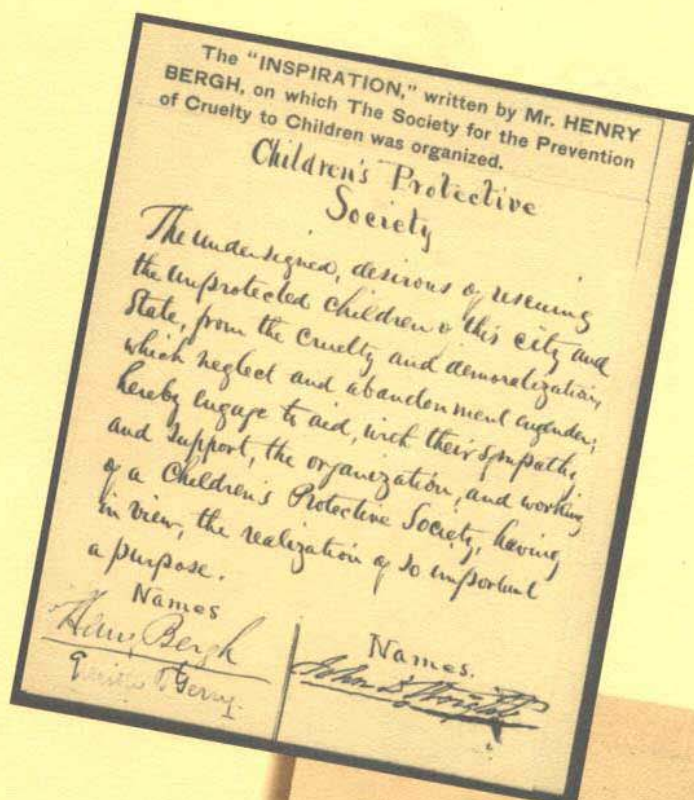 The "INSPIRATION," written by Mr. HENRY
BERGH, on which The Society for the Prevention
of Cruelty to Children was organized.
Children's Protective
Society
The undersigned, desirous of rescuing
the unprotected children of this city and
State, from the cruelty and demoralization,
which neglect and abandonment engender;
hereby engage to aid, with their sympathy
and support, the organization, and working
of a Children's Protective Society, having
in view, the realization of so important
a purpose.
Names
Henry Bergh
T. Gerry.
Names.
John D. Wright